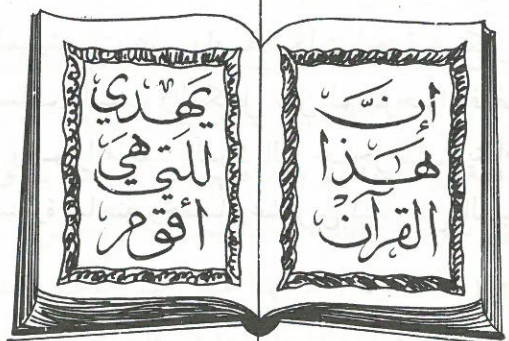 إنَّ
هَذا
القرآن
يَهدي
للَتي هيَ
أقوم